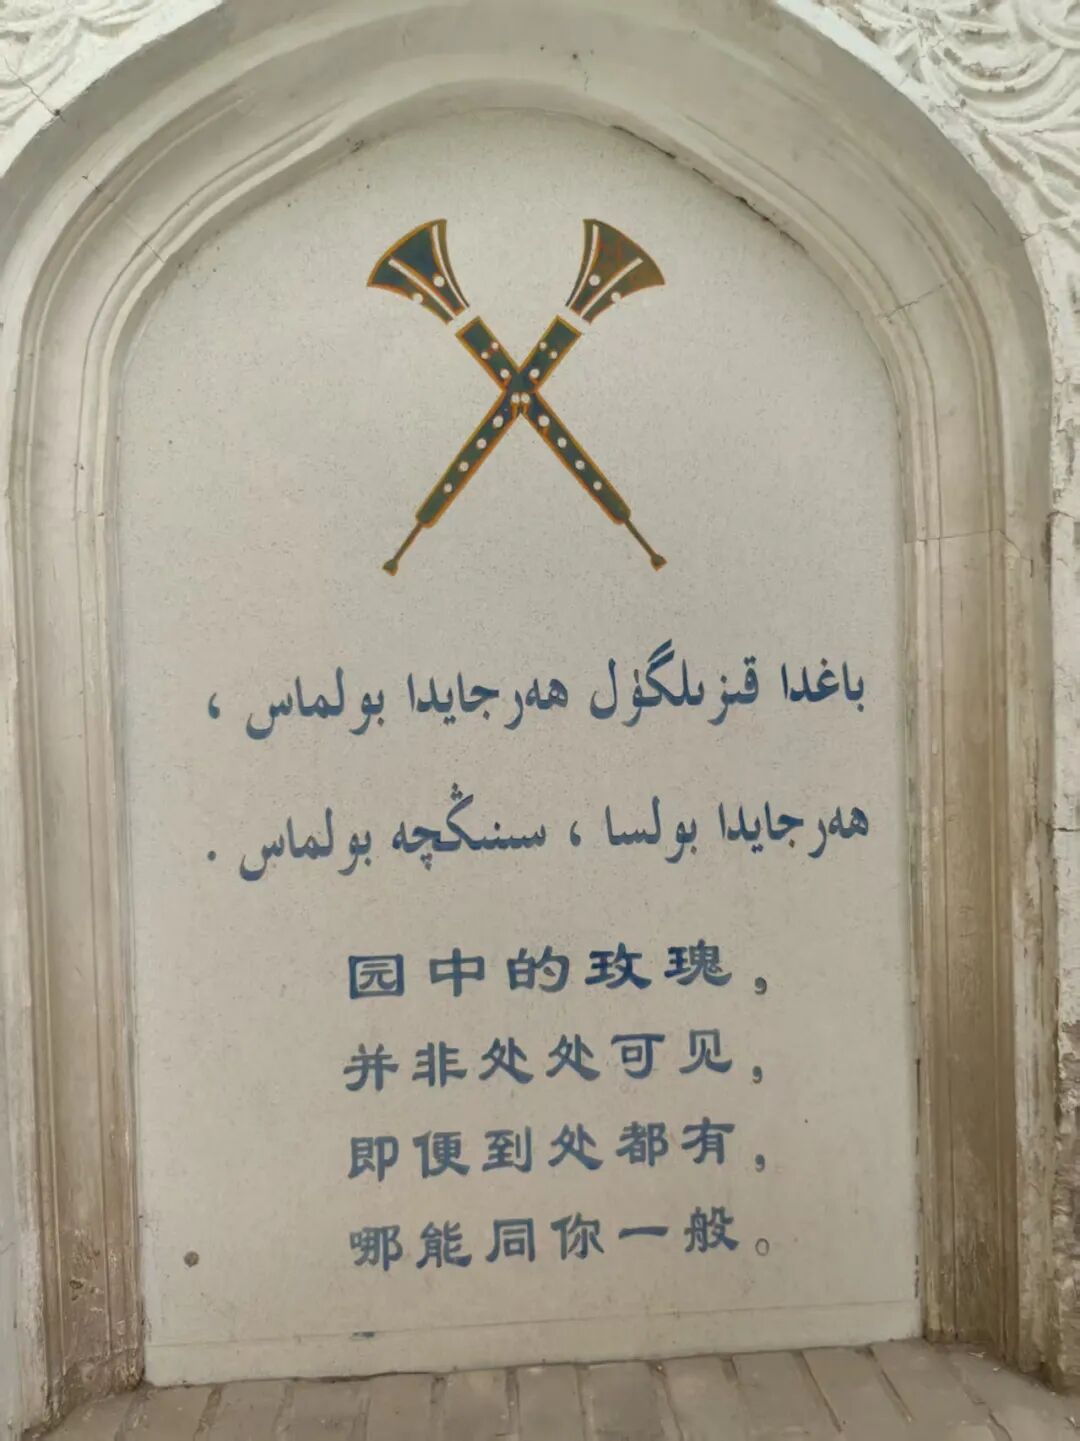 باغدا قىزىلگۈل ھەرجايدا بولماس ،
ھەرجايدا بولسا ، سىنىڭچە بولماس .
园中的玫瑰，
并非处处可见，
即便到处都有，
哪能同你一般。